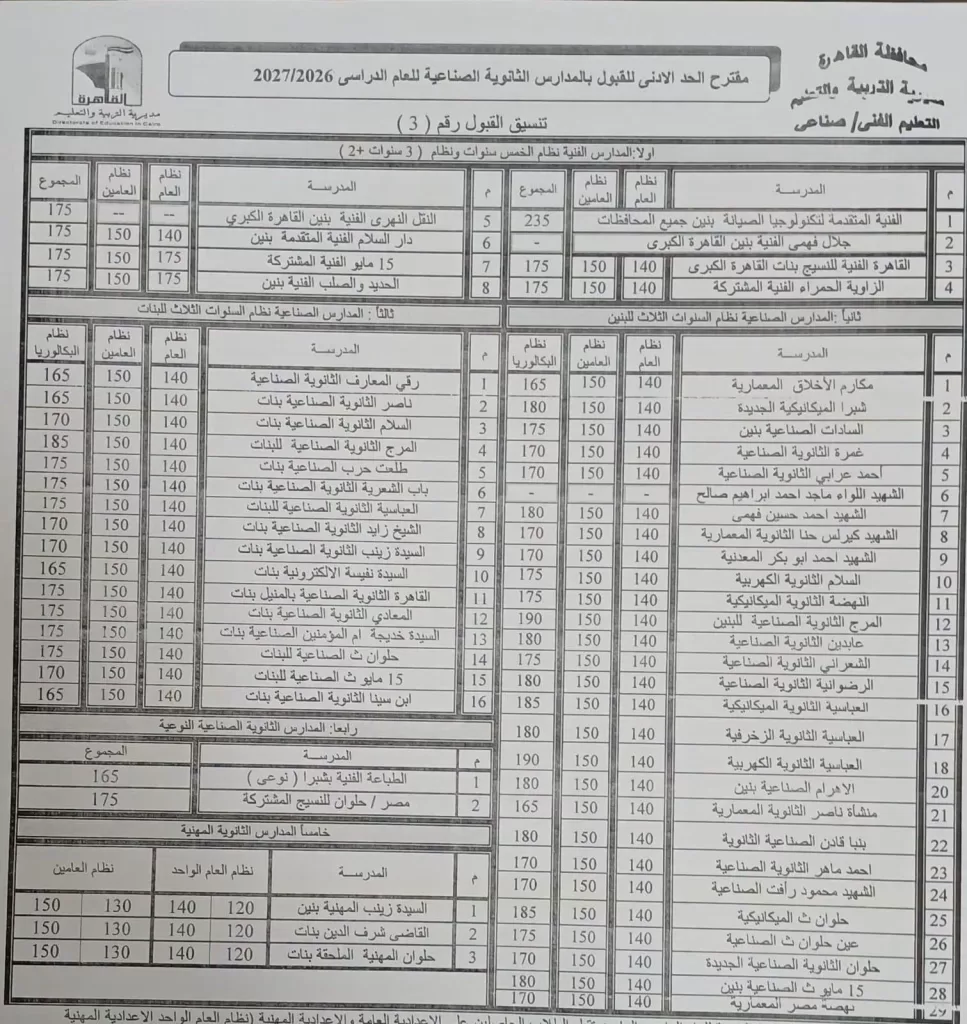 محافظة القاهرة
مديرية التربية والتعليم
التعليم الفنى/ صناعى
القاهرة
مديرية التربية والتعليم
Directorate of Education in Cairo
مقترح الحد الادنى للقبول بالمدارس الثانوية الصناعية للعام الدراسى 2027/2026
تنسيق القبول رقم ( 3 )
اولا:المدارس الفنية نظام الخمس سنوات ونظام ( 3 سنوات +2 )
م المدرسة نظام العام نظام العامين المجموع
1 الفنية المتقدمة لتكنولوجيا الصيانة بنين جميع المحافظات 235
2 جلال فهمى الفنية بنين القاهرة الكبرى -
3 القاهرة الفنية للنسيج بنات القاهرة الكبرى 140 150 175
4 الزاوية الحمراء الفنية المشتركة 140 150 175
م المدرسة نظام العام نظام العامين المجموع
5 النقل النهرى الفنية بنين القاهرة الكبري -- -- 175
6 دار السلام الفنية المتقدمة بنين 140 150 175
7 15 مايو الفنية المشتركة 175 150 175
8 الحديد والصلب الفنية بنين 175 150 175
ثانياً :المدارس الصناعية نظام السنوات الثلاث للبنين
م المدرسة نظام العام نظام العامين نظام البكالوريا
1 مكارم الأخلاق المعمارية 140 150 165
2 شبرا الميكانيكية الجديدة 140 150 180
3 السادات الصناعية بنين 140 150 175
4 غمرة الثانوية الصناعية 140 150 170
5 أحمد عرابي الثانوية الصناعية 140 150 170
6 الشهيد اللواء ماجد احمد ابراهيم صالح - - -
7 الشهيد احمد حسين فهمى 140 150 180
8 الشهيد كيرلس حنا الثانوية المعمارية 140 150 170
9 الشهيد احمد ابو بكر المعدنية 140 150 170
10 السلام الثانوية الكهربية 140 150 175
11 النهضة الثانوية الميكانيكية 140 150 175
12 المرج الثانوية الصناعية للبنين 140 150 190
13 عابدين الثانوية الصناعية 140 150 180
14 الشعراني الثانوية الصناعية 140 150 175
15 الرضوانية الثانوية الصناعية 140 150 180
16 العباسية الثانوية الميكانيكية 140 150 185
17 العباسية الثانوية الزخرفية 140 150 180
18 العباسية الثانوية الكهربية 140 150 190
20 الاهرام الصناعية بنين 140 150 180
21 منشأة ناصر الثانوية المعمارية 140 150 165
22 بنبا قادن الصناعية الثانوية 140 150 180
23 احمد ماهر الثانوية الصناعية 140 150 170
24 الشهيد محمود رأفت الصناعية 140 150 170
25 حلوان ث الميكانيكية 140 150 185
26 عين حلوان ث الصناعية 140 150 175
27 حلوان الثانوية الصناعية الجديدة 140 150 170
28 15 مايو ث الصناعية بنين 140 150 180
29 نهضة مصر المعمارية 140 150 170
ثالثاً : المدارس الصناعية نظام السنوات الثلاث للبنات
م المدرسة نظام العام نظام العامين نظام البكالوريا
1 رقي المعارف الثانوية الصناعية 140 150 165
2 ناصر الثانوية الصناعية بنات 140 150 165
3 السلام الثانوية الصناعية بنات 140 150 170
4 المرج الثانوية الصناعية للبنات 140 150 185
5 طلعت حرب الصناعية بنات 140 150 175
6 باب الشعرية الثانوية الصناعية بنات 140 150 175
7 العباسية الثانوية الصناعية للبنات 140 150 175
8 الشيخ زايد الثانوية الصناعية بنات 140 150 170
9 السيدة زينب الثانوية الصناعية بنات 140 150 170
10 السيدة نفيسة الالكترونية بنات 140 150 165
11 القاهرة الثانوية الصناعية بالمنيل بنات 140 150 175
12 المعادي الثانوية الصناعية بنات 140 150 175
13 السيدة خديجة ام المؤمنين الصناعية بنات 140 150 175
14 حلوان ث الصناعية للبنات 140 150 175
15 15 مايو ث الصناعية للبنات 140 150 170
16 ابن سينا الثانوية الصناعية بنات 140 150 165
رابعا: المدارس الثانوية الصناعية النوعية
م المدرسة المجموع
1 الطباعة الفنية بشبرا ( نوعى ) 165
2 مصر / حلوان للنسيج المشتركة 175
خامساً المدارس الثانوية المهنية
م المدرسة نظام العام الواحد نظام العامين
1 السيدة زينب المهنية بنين 120 140 130 150
2 القاضى شرف الدين بنات 120 140 130 150
3 حلوان المهنية الملحقة بنات 120 140 130 150